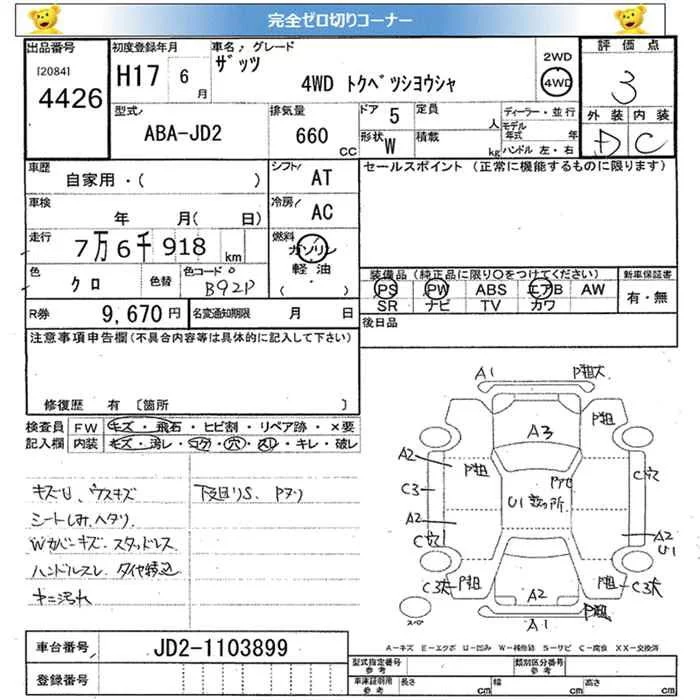 完全ゼロ切りコーナー
出品番号
[2084]
4426
初度登録年月
H17 6月
車名/グレード
ザッツ
4WD トクベツシヨウシヤ
2WD
4WD
評価点
3
外装 内装
D C
型式
ABA-JD2
排気量
660 CC
ドア 5
定員 人
形状 W
積載 kg
ディーラー・並行
モデル年式 年
ハンドル 左・右
車歴
自家用・( )
シフト AT
セールスポイント (正常に機能するものに限ります)
車検
年 月( 日)
冷房 AC
走行
7万6千918 km
燃料
ガソリン
軽油
( ・ )
色
クロ
色替
色コード
B92P
装備品(純正品に限り○をつけてください)
PS PW ABS エアB AW
SR ナビ TV カワ
新車保証書
有・無
R券 9,670円
名変通知期限 月 日
後日品
注意事項申告欄(不具合内容等は具体的に記入して下さい)
修復歴 有 〔箇所 〕
検査員記入欄
FW キズ・飛石・ヒビ割・リペア跡・×要
内装 キズ・汚レ・コゲ・穴・スレ・キレ・破レ
キズU、ウスキズ
シートしみ、ヘタリ
Wカバーキズ、スタッドレス
ハンドルスレ、タイヤ積込
下廻りS、Pヌリ
A1 P粗大
P粗
A3
A2 P粗
C3
U1数ヶ所
C穴
A2
C穴
A2
U1
C3大 P粗
A2
P粗 C3大
A1 P粗
スペア
A-キズ E-エクボ U-凹み W-補修跡 S-サビ C-腐食 XX-交換済
車台番号 JD2-1103899
登録番号
型式指定番号 参考
類別区分番号 参考
車庫証明用 参考
長さ cm
幅 cm
高さ cm